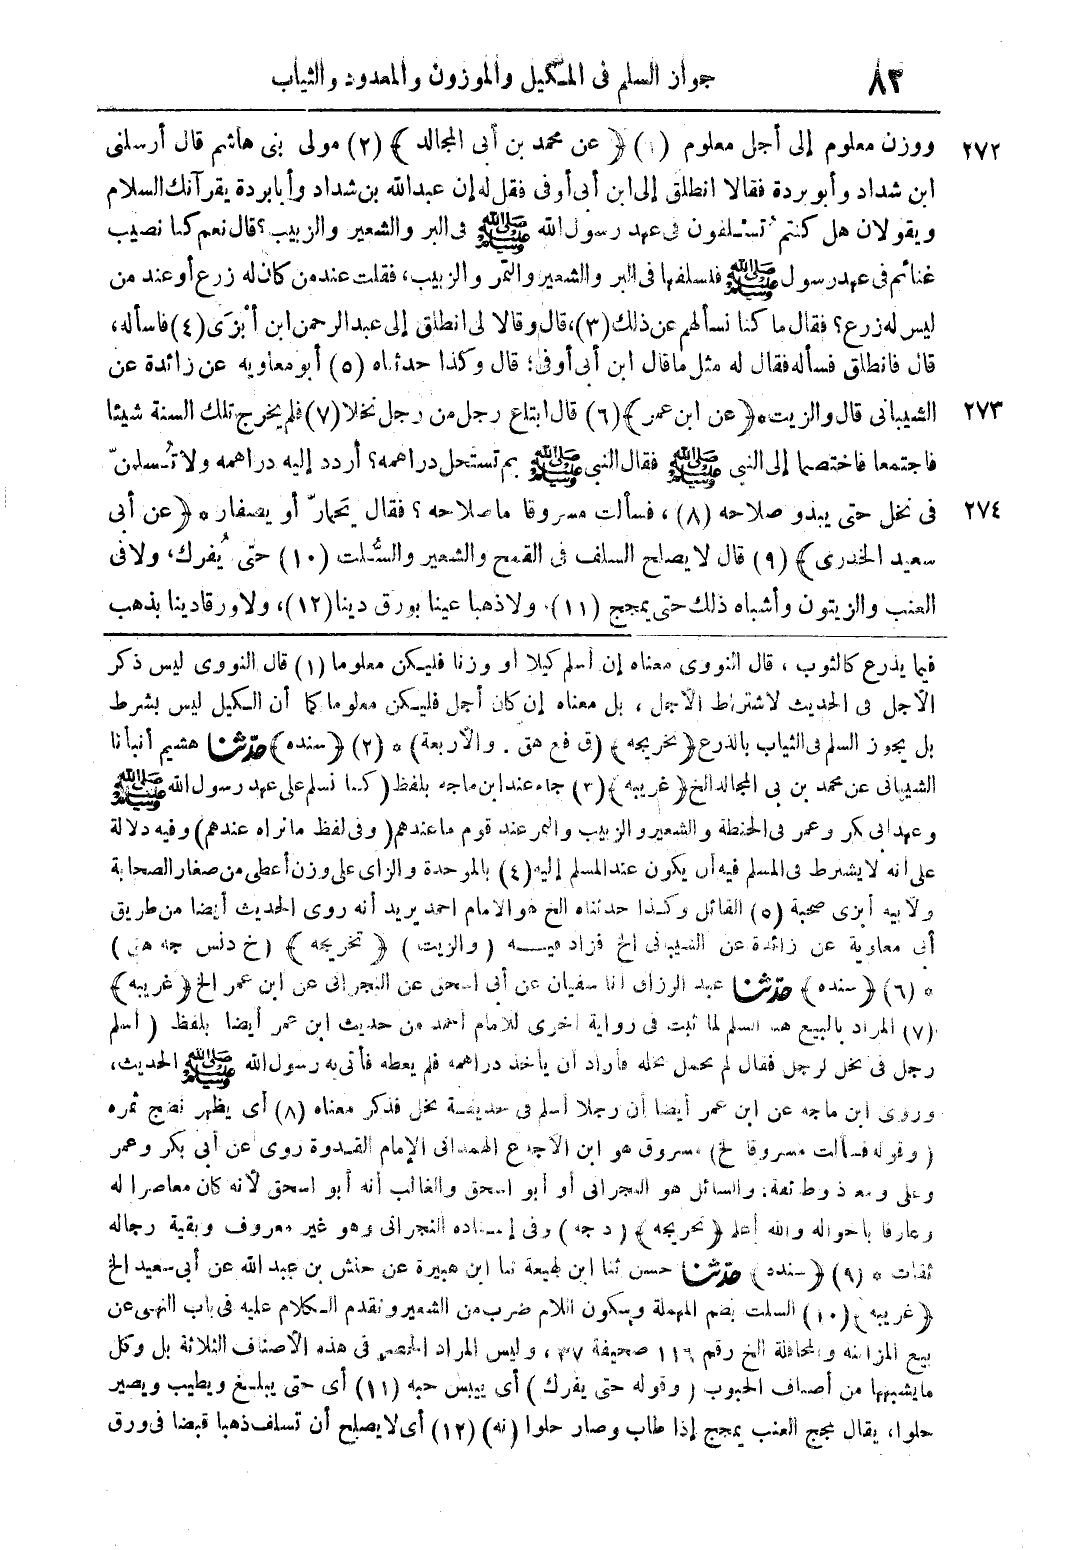 ٨٣ جواز السلم فى المكيل والموزون والمعدود والثياب
٢٧٢ ووزن معلوم إلى أجل معلوم (١) ﴿ عن محمد بن أبى المجالد ﴾ (٢) مولى بنى هاشم قال أرسلنى
ابن شداد وأبو بردة فقالا انطلق إلى ابن أبى أوفى فقل له إن عبدالله بن شداد وأبا بردة يقرآنك السلام
ويقولان هل كنتم تُسلفون فى عهد رسول الله ﷺ فى البر والشعير والزبيب؟ قال نعم كنا نصيب
غنائم فى عهد رسول ﷺ فنسلفها فى البر والشعير والتمر والزبيب، فقلت عند من كان له زرع أو عند من
ليس له زرع؟ فقال ما كنا نسألهم عن ذلك (٣)، قال وقالا لى انطلق إلى عبد الرحمن ابن أبْزَى (٤) فاسأله،
قال فانطلق فسأله فقال له مثل ما قال ابن أبى أوفى؛ قال وكذا حدثناه (٥) أبو معاويه عن زائدة عن
٢٧٣ الشيبانى قال والزيت * ﴿ عن ابن عمر ﴾ (٦) قال ابتاع رجل من رجل نخلا (٧) فلم يخرج تلك السنة شيئا
فاجتمعا فاختصما إلى النبى ﷺ فقال النبى ﷺ بم تستحل دراهمه؟ أردد إليه دراهمه ولا تُسلمنّ
٢٧٤ فى نخل حتى يبدو صلاحه (٨)، فسألت مسروقا ما صلاحه ؟ فقال يحمارّ أو يصفار * ﴿ عن أبى
سعيد الخدرى ﴾ (٩) قال لا يصلح السلف فى القمح والشعير والسُّلت (١٠) حتى يُفرك، ولا فى
العنب والزيتون وأشباه ذلك حتى يمجج (١١). ولا ذهبا عينا بورق دينا (١٢)، ولا ورقا دينا بذهب
فيما يذرع كالثوب ، قال النووى معناه إن أسلم كيلا أو وزنا فليكن معلوما (١) قال النووى ليس ذكر
الأجل فى الحديث لاشتراط الأجل ، بل معناه إن كان أجل فليكن معلوما كما أن الكيل ليس بشرط
بل يجوز السلم فى الثياب بالذرع ﴿ تخريجه ﴾ (ق فع هق . والأربعة) * (٢) ﴿ سنده ﴾ حدثنا هشيم أنبأنا
الشيبانى عن محمد بن بى المجالد الخ ﴿ غريبه ﴾ (٣) جاء عند ابن ماجه بلفظ ( كنا نسلم على عهد رسول الله ﷺ
وعهد ابى بكر وعمر فى الحنطة والشعير والزبيب والتمر عند قوم ما عندهم ( وفى لفظ ما نراه عندهم ) وفيه دلالة
على أنه لا يشترط فى المسلم فيه أن يكون عند المسلم إليه (٤) بالموحدة والزاى على وزن أعطى من صغار الصحابة
ولابيه أبزى صحبة (٥) القائل وكذا حدثناه الخ هو الامام احمد يريد أنه روى الحديث أيضا من طريق
أبى معاوية عن زائدة عن الشيبانى الخ فزاد فيه ( والزيت ) ﴿ تخريجه ﴾ (خ د نس جه هق)
* (٦) ﴿ سنده ﴾ حدثنا عبد الرزاق انا سفيان عن أبى اسحق عن النجرانى عن ابن عمر الخ ﴿ غريبه ﴾
(٧) المراد بالبيع هنا السلم لما ثبت فى رواية اخرى للامام احمد من حديث ابن عمر أيضا بلفظ ( أسلم
رجل فى نخل لرجل فقال لم يحمل نخله فأراد أن يأخذ دراهمه فلم يعطه فأتى به رسول الله ﷺ الحديث،
وروى ابن ماجه عن ابن عمر أيضا أن رجلا أسلم فى حديقة نخل فذكر معناه (٨) أى يظهر نضج ثمره
( وقوله فسألت مسروقا لخ) مسروق هو ابن الأجدع الهمدانى الإمام القدوة روى عن أبى بكر وعمر
وعلى ومعاذ وطائفة: والسائل هو النجرانى أو أبو اسحق والغالب أنه أبو اسحق لأنه كان معاصرا له
وعارفا باحواله والله أعلم ﴿ تخريجه ﴾ ( د جه ) وفى إسناده النجرانى وهو غير معروف وبقية رجاله
ثقات * (٩) ﴿ سنده ﴾ حدثنا حسن ثنا ابن لهيعة ثنا ابن هبيرة عن حنش بن عبد الله عن أبى سعيد الخ
﴿ غريبه ﴾ (١٠) السلت بضم المهملة وسكون اللام ضرب من الشعير وتقدم الكلام عليه فى باب النهى عن
بيع المزابنه والمحاقلة الخ رقم ١١٦ صحيفة ٣٧، وليس المراد الحصر فى هذه الأصناف الثلاثة بل وكل
مايشبهها من أصناف الحبوب ( وقوله حتى يفرك ) أى ييبس حبه (١١) أى حتى يبلغ ويطيب ويصير
حلوا، يقال مجج العنب يمجج إذا طاب وصار حلوا (نه) (١٢) أى لا يصلح أن تسلف ذهبا قبضا فى ورق